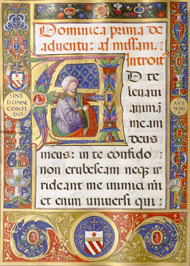 Dominica prima de
adventu: ad missam.
Introit
AD te
levavi
animā
meam
deus
meus: in te confido
non erubescam neq ir
rideant me inimici mi
et enim universi qui:
SINT
DOMNE
CONFI
DO